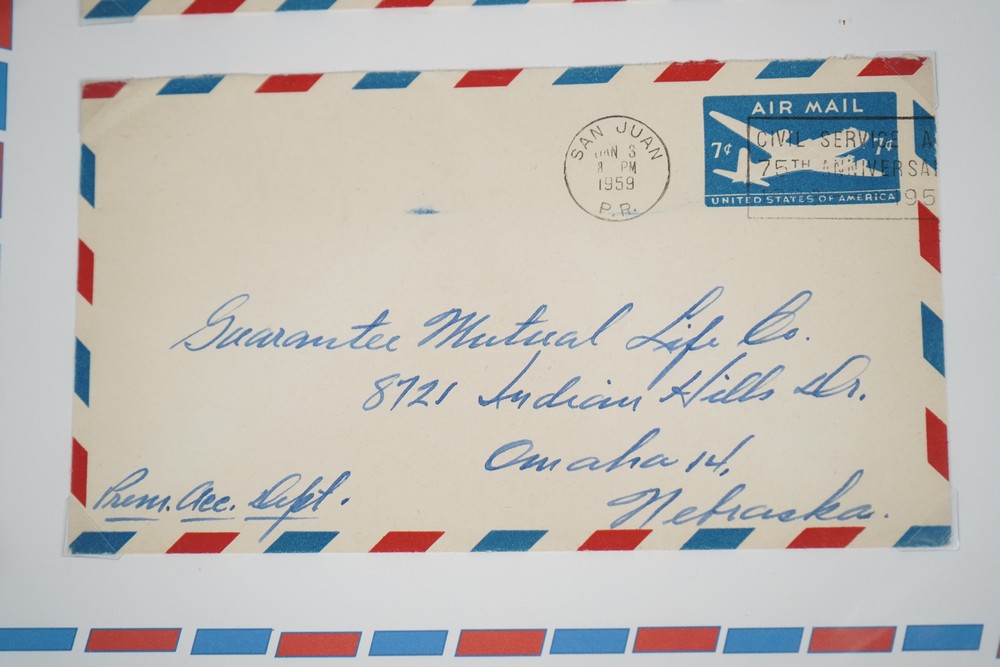 SAN JUAN
JAN 3
8 PM
1959
P.R.
AIR MAIL
7¢ 7¢
UNITED STATES OF AMERICA
CIVIL SERVICE A
75TH ANNIVERSA
195
Guarantee Mutual Life Co.
8721 Indian Hills Dr.
Omaha 14,
Nebraska.
Prem. Acc. Dept.